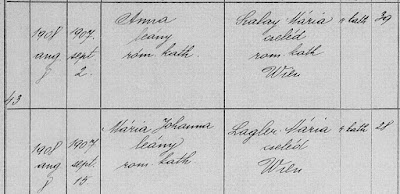 1908 1907. Anna Szabay Mária r. kath 39
aug sept leány cseléd
8 2. róm. kath. rom. kath
Wien
43
1908 1907 Mária Johanna Lagler Mária r. kath 28
aug sept. leány cseléd
8 15. róm. kath. Wien